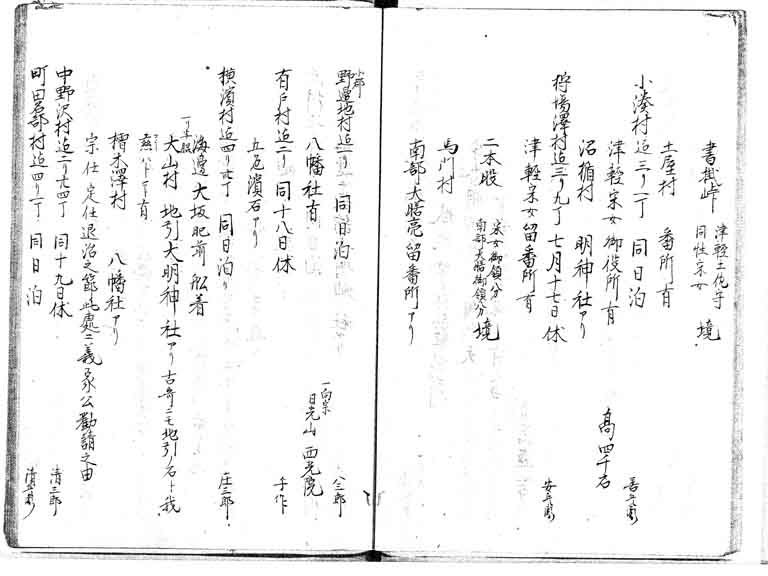 書掛峠 津軽土佐守 同性采女 境
土屋村 番所有
小湊村迠三リ一丁 同日泊 善兵衛
津軽采女御役所有
沼舘村 明神社アリ 高四千石
狩場澤村迠三リ九丁 七月十七日休 安兵衛
津軽采女留番所有
二本股 采女御領分 南部大膳御領分 境
馬門村
南部大膳亮留番所アリ
野邊地村迠 同日泊 八三郎
八幡社有 一向宗 日光山 西光院
有戸村迠二リ 同十八日休 手作
五色濱石アリ
横濱村迠四リ六丁 同日泊リ 庄三郎
海邊大坂肥前舩着
大山村 地引大明神社アリ 古哥ニモ地引ノ石ト我
檜木澤村 八幡社アリ
宗任定任退治之節此處ニ義家公勸請之由
中野沢村迠二リ廿四丁 同十九日休 清三郎
町田名部村迠四リ一丁 同日泊